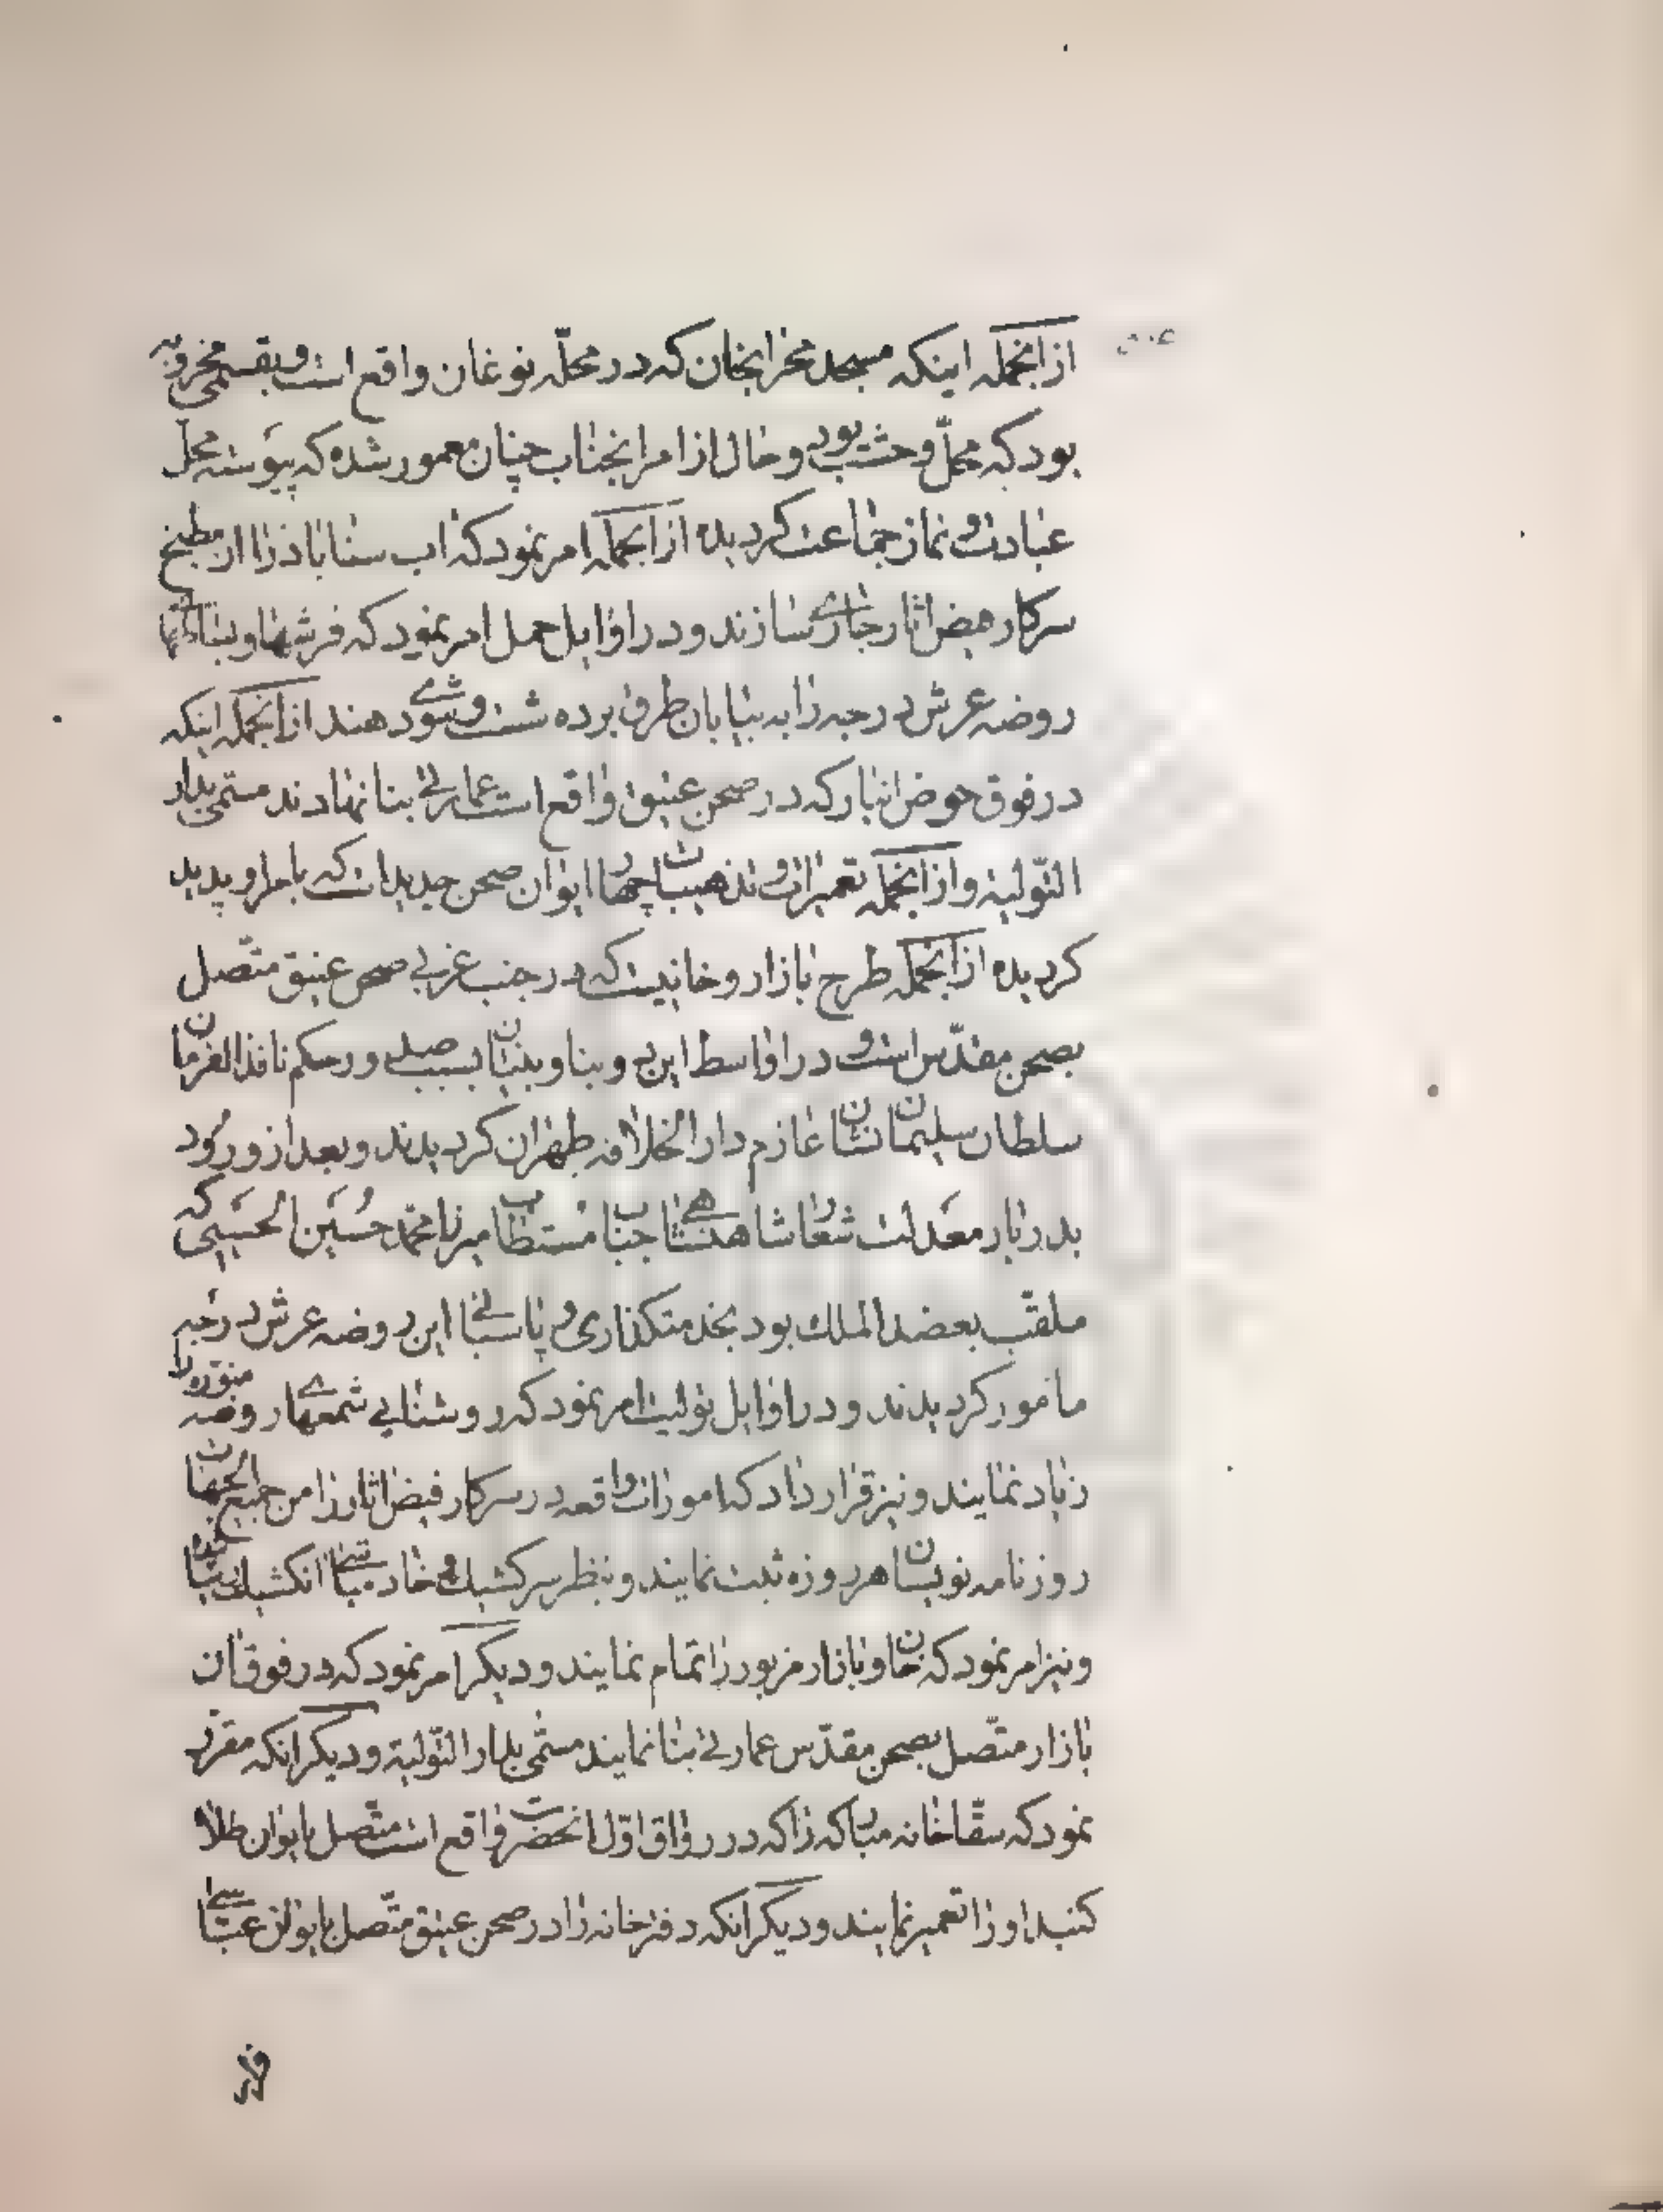 ازانجمله اینکه مسجد محرابخان که در محلّه نوغان واقع است و بقسمی مخروبه
بود که محلّ وحشت بود و حال از امر انجناب چنان معمور شده که پیَوسته محل
عبادت و نماز جماعت کردیده ازانجمله امر نمود که اب سناباد را از مطبخ
سرکار فیض اثار جاری سازند و در اوایل حمل امر نمود که فرشها و
روضه عرش درجه را به بیابان طرق برده شست و شوی دهند ازانجمله اینکه
در فوق حوض انبار که در صحن عتیق واقع است عمارتی بنا نهادند مسمّی بدار
التّولیة و ازانجمله تعمیرات و تذهیبات چهار ایوان صحن جدید است که بامر او پدید
کردیده ازانجمله طرح بازار و خانیست که در جنب غربی صحن عتیق متّصل
بصحن مقدّس است و در اواسط این و بنا و بنیان بسبب حکم نافذ الفرمان
سلطان سلیمان نشان عازم دار الخلافه طهران کردیدند و بعد از ورُود
بدربار معَدلت شعار شاهنشاهی جناب مُستطاب میرزا محمّد حُسَین الحسَینی که
ملقّب بعضد الملك بود بخدمتکذاری و پاسبانی این روضه عرش درَجه
مامور کردیدند و در اوایل تولیت امر نمود که روشنایی شمعهای روضه منوّره را
زیاد نمایند و نیز قرار داد که امورات واقعه در سرکار فیض اثار را من جمیع الجهات
روزنامه نویسان هر روزه ثبت نمایند و بنظر سرکشیك و خادمباشی ان کشیك
و نیز امر نمود که خان و بازار مزبور را تمام نمایند و دیکر امر نمود که در فوق ان
بازار متّصل بصحن مقدّس عمارتی بنا نمایند مسمّی بدار التّولیة و دیکر انکه مقرّر
نمود که سقّاخانه مبارکه را که در رواق اوّل انحضرت واقع است متّصل بایوان طلا
کنبد او را تعمیر نمایند و دیکر انکه دفترخانه را در صحن عتیق متّصل بایوان عبّاسی